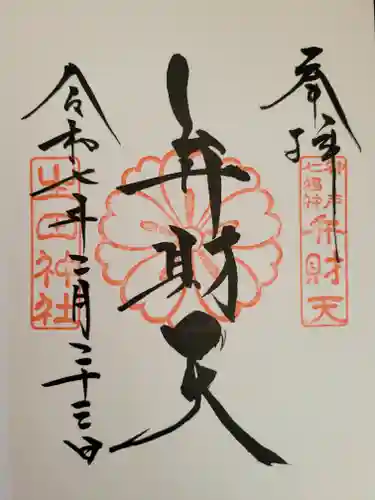 奉拝
神戸七福神
弁財天
弁財天
生田神社
令和七年二月二十三日